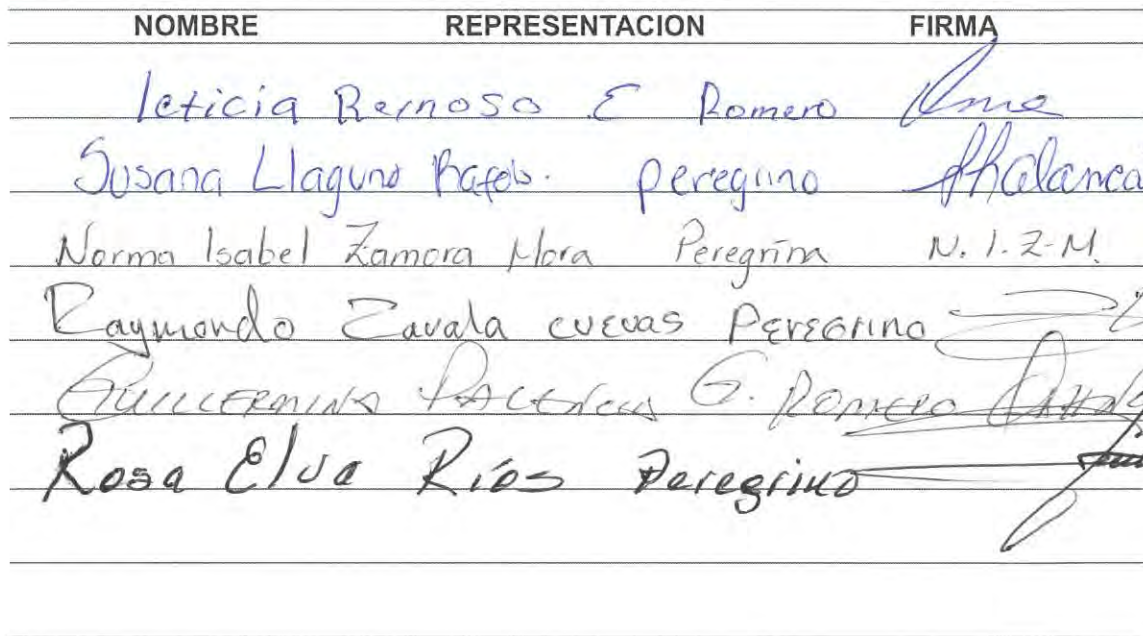 NOMBRE REPRESENTACION FIRMA
leticia Reinoso E Romero
Susana Llaguno peregrino
Norma Isabel Zamora Mora Peregrina N. I. Z-M.
Raymundo Zavala cuevas Peregrino
Guillermina G. Romero
Rosa Elva Ríos Peregrino